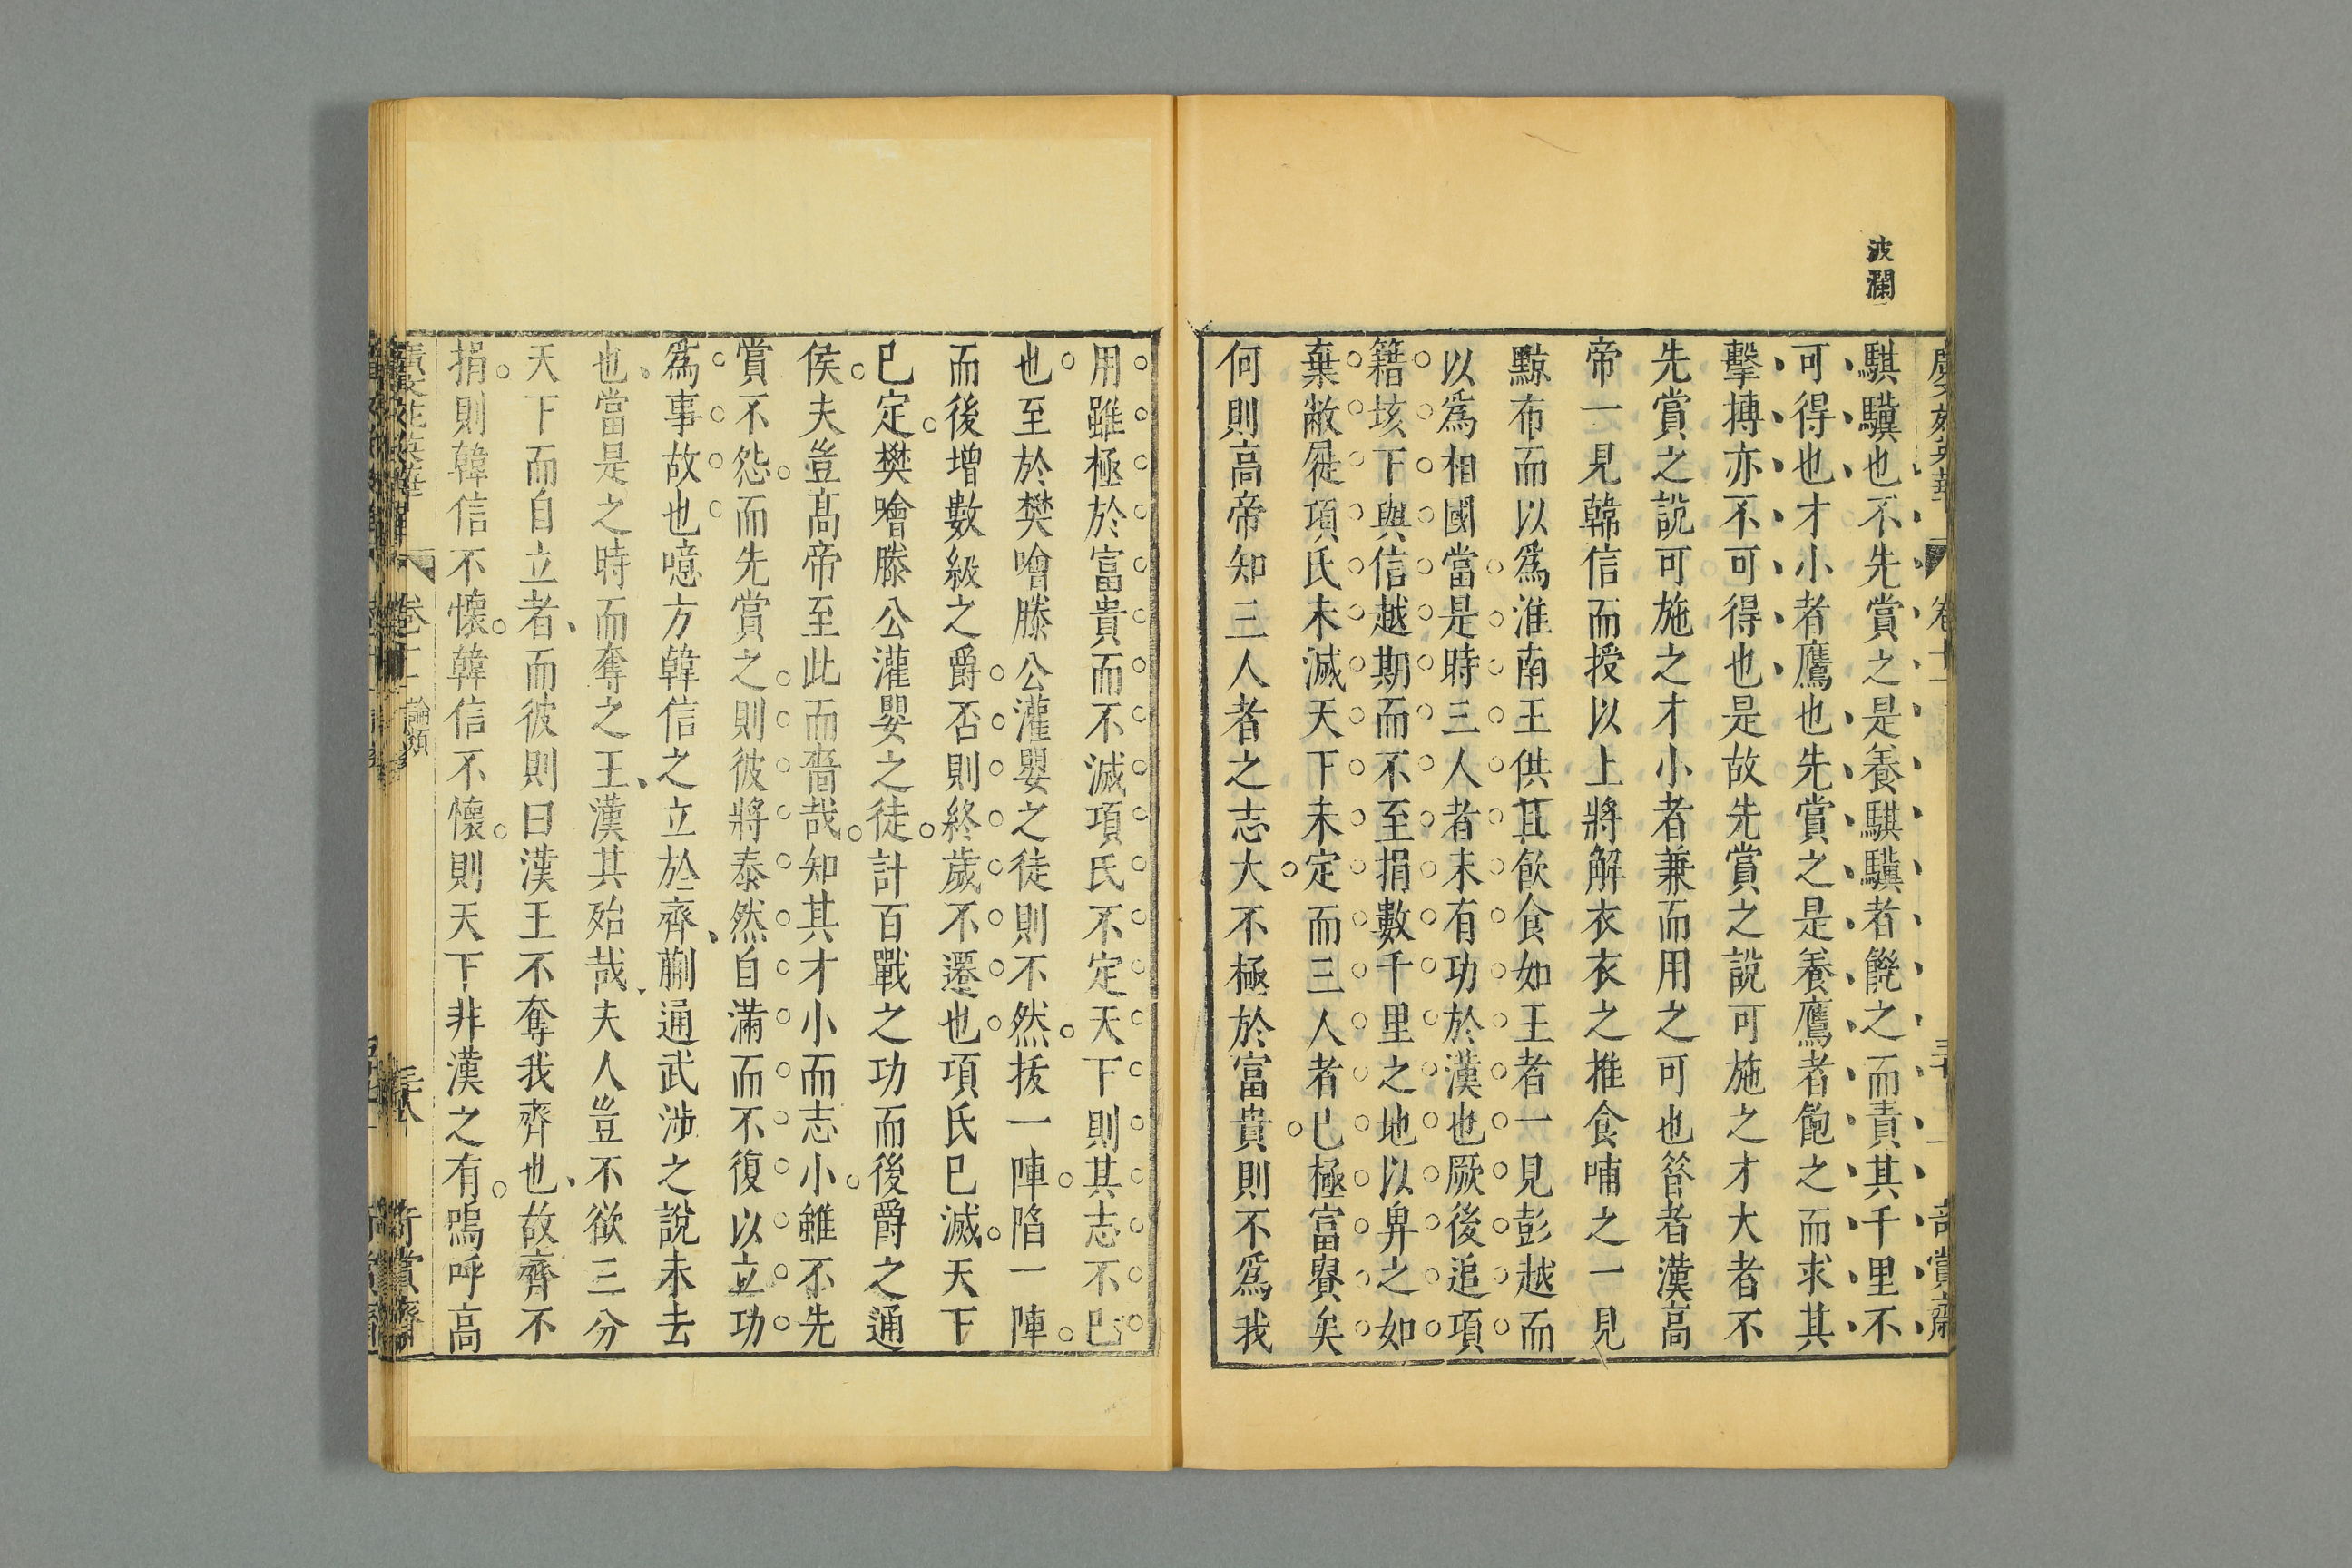 波瀾
騏驥也不先賞之是養騏驥者饑之而責其千里不
可得也才小者鷹也先賞之是養鷹者飽之而求其
擊搏亦不可得也是故先賞之說可施之才大者不
先賞之說可施之才小者兼而用之可也昝者漢高
帝一見韓信而授以上將解衣衣之推食哺之一見
黥布而以爲淮南王供其飲食如王者一見彭越而
以爲相國當是時三人者未有功於漢也厥後追項
籍垓下與信越期而不至捐數千里之地以畀之如
棄敝屣項氏未滅天下未定而三人者已極富貴矣
何則高帝知三人者之志大不極於富貴則不爲我
用雖極於富貴而不滅項氏不定天下則其志不已
也至於樊噲滕公灌嬰之徒則不然拔一陣陷一陣
而後增數級之爵否則終歲不遷也項氏已滅天下
已定樊噲滕公灌嬰之徒計百戰之功而後爵之通
侯夫豈髙帝至此而嗇哉知其才小而志小雖不先
賞不怨而先賞之則彼將泰然自滿而不復以立功
爲事故也噫方韓信之立於齊蒯通武涉之說未去
也當是之時而奪之王漢其殆哉夫人豈不欲三分
天下而自立者而彼則曰漢王不奪我齊也故齊不
捐則韓信不懷韓信不懷則天下非漢之有嗚呼高